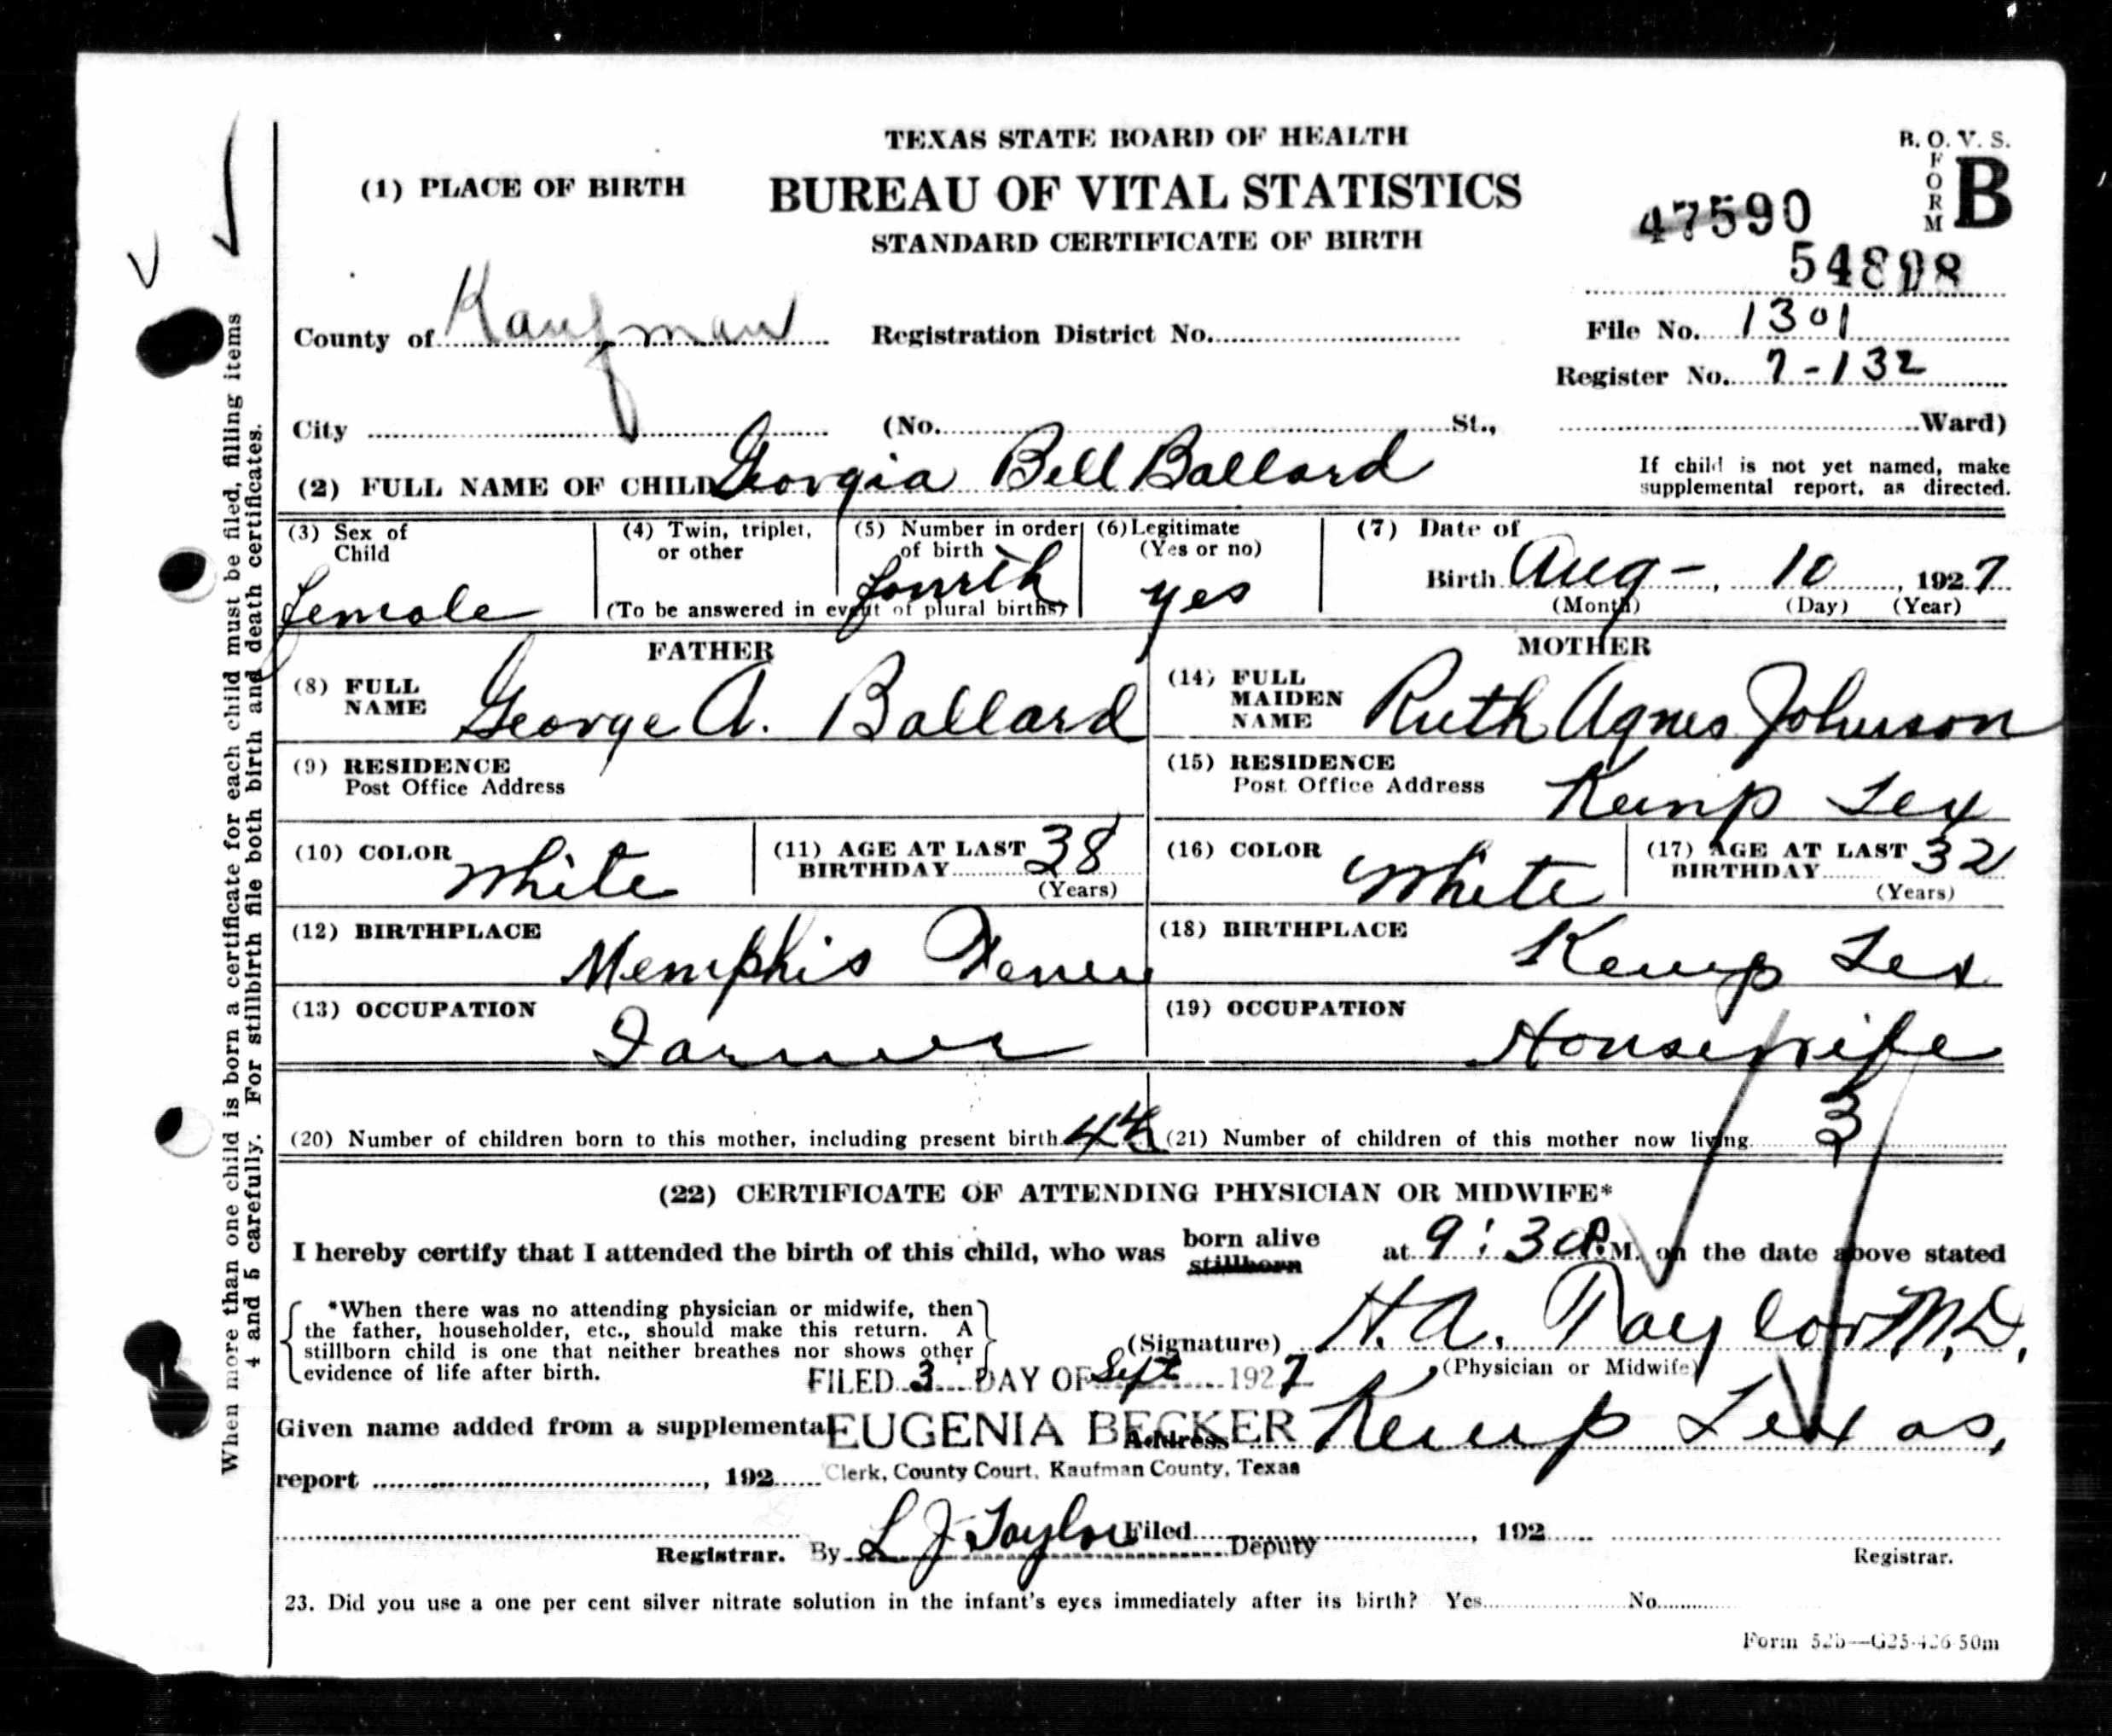 TEXAS STATE BOARD OF HEALTH
B. O. V. S.
FORM B
(1) PLACE OF BIRTH
BUREAU OF VITAL STATISTICS
47590
STANDARD CERTIFICATE OF BIRTH
County of Kaufman Registration District No.
File No. 1301
Register No. 7-132
City (No. St., Ward)
(2) FULL NAME OF CHILD Georgia Bell Ballard
If child is not yet named, make
supplemental report, as directed.
(3) Sex of Child female
(4) Twin, triplet, or other
(5) Number in order of birth fourth
(To be answered in event of plural births)
(6) Legitimate (Yes or no) yes
(7) Date of
Birth Aug - , 10 , 1927
(Month) (Day) (Year)
FATHER
(8) FULL NAME George A. Ballard
(9) RESIDENCE
Post Office Address
(10) COLOR White
(11) AGE AT LAST BIRTHDAY 38 (Years)
(12) BIRTHPLACE Memphis Tenn
(13) OCCUPATION Farmer
MOTHER
(14) FULL MAIDEN NAME Ruth Agnes Johnson
(15) RESIDENCE
Post Office Address Kemp Tex
(16) COLOR White
(17) AGE AT LAST BIRTHDAY 32 (Years)
(18) BIRTHPLACE Kemp Tex
(19) OCCUPATION Housewife
(20) Number of children born to this mother, including present birth 4
(21) Number of children of this mother now living 3
(22) CERTIFICATE OF ATTENDING PHYSICIAN OR MIDWIFE*
I hereby certify that I attended the birth of this child, who was born alive stillborn at 9:30 P.M. on the date above stated
*When there was no attending physician or midwife, then
the father, householder, etc., should make this return. A
stillborn child is one that neither breathes nor shows other
evidence of life after birth.
(Signature) H. A. Taylor M.D.
(Physician or Midwife)
FILED 3 DAY OF Sept 1927
Given name added from a supplemental
EUGENIA BECKER
Address Kemp Texas,
report , 192
Clerk, County Court, Kaufman County, Texas
Filed , 192
Registrar. By L J Taylor Deputy
Registrar.
23. Did you use a one per cent silver nitrate solution in the infant's eyes immediately after its birth? Yes No
Form 52b—G25-426-50m
When more than one child is born a certificate for each child must be filed, filling items
4 and 5 carefully. For stillbirth file both birth and death certificates.